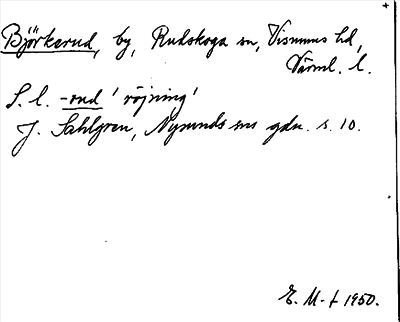 Björkerud, by, Rudskoga sn, Visnums hd,
Värml. l.
S. l. -rud 'röjning'
J. Sahlgren, Nysunds sns gdn. s. 10.
E. M-t 1950.